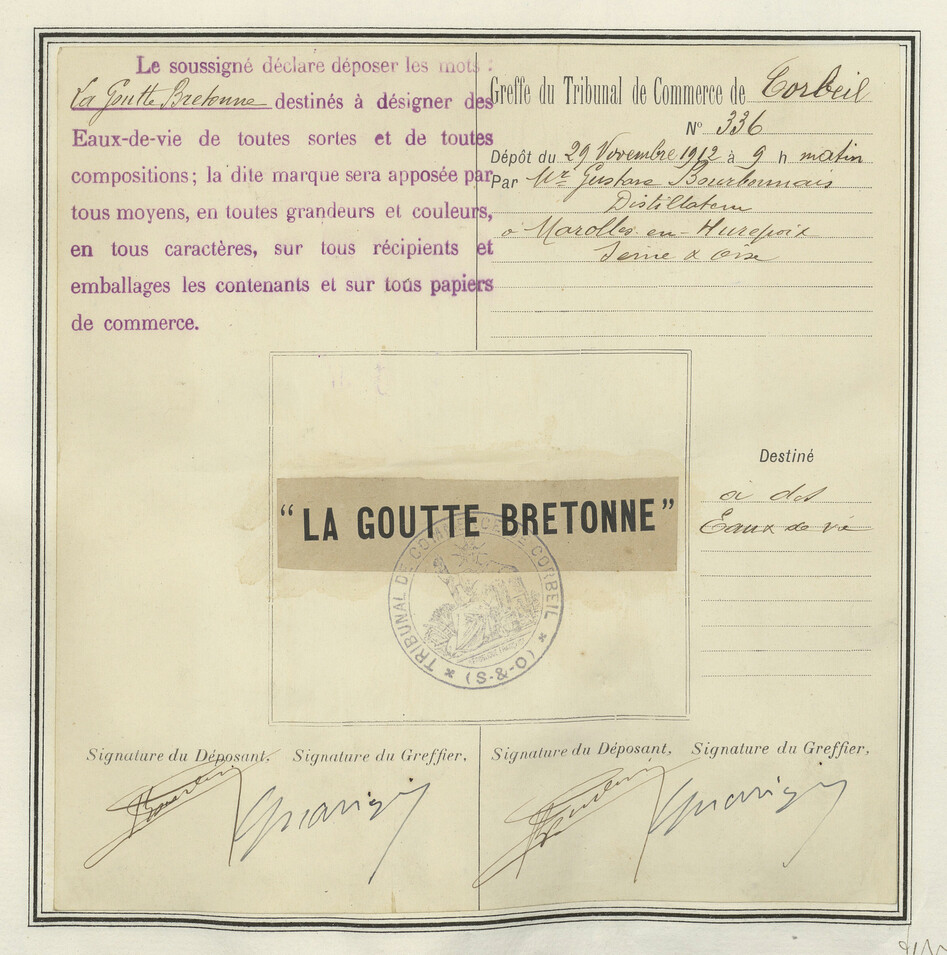 Le soussigné déclare déposer les mots :
La Goutte Bretonne destinés à désigner des
Eaux-de-vie de toutes sortes et de toutes
compositions ; la dite marque sera apposée par
tous moyens, en toutes grandeurs et couleurs,
en tous caractères, sur tous récipients et
emballages les contenants et sur tous papiers
de commerce.
Greffe du Tribunal de Commerce de Corbeil
N° 336
Dépôt du 29 Novembre 1912 à 9 h matin
Par Mr Gustave Bourbonnais
Distillateur
à Marolles-en-Hurepoix
Seine & Oise
"LA GOUTTE BRETONNE"
TRIBUNAL DE COMMERCE DE CORBEIL
(S-&-O)
Destiné
à des
Eaux de vie
Signature du Déposant, Signature du Greffier,
Signature du Déposant, Signature du Greffier,